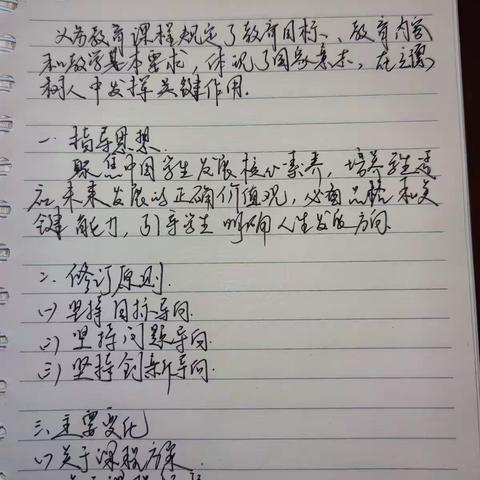 义务教育课程规定了教育目标、教育内容
和教学基本要求，体现了国家意志，在立德
树人中发挥关键作用.
一、指导思想.
聚焦中国学生发展核心素养，培养学生适
应未来发展的正确价值观，必备品格和关
键能力，引导学生明确人生发展方向.
二、修订原则.
(一)坚持目标导向.
(二)坚持问题导向.
(三)坚持创新导向.
三、主要变化
(一)关于课程方案.